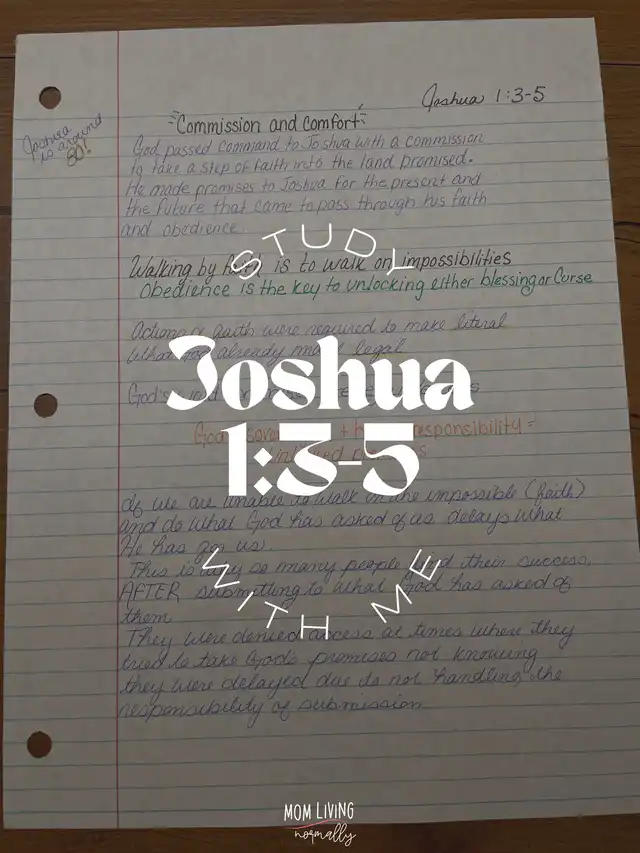 Joshua 1:3-5
Joshua
is around
80!
"Commission and Comfort"
God passed command to Joshua with a commission
to take a step of faith into the land promised.
He made promises to Joshua for the present and
the future that came to pass through his faith
and obedience.
STUDY
Walking by faith is to walk on impossibilities
Obedience is the key to unlocking either blessing or Curse
Actions of faith were required to make literal
what God already made legal
Joshua
God's
God + responsibility =
1:3-5
If we are unable to walk on the impossible (faith)
and do what God has asked of us delays what
He has for us.
This is why so many people find their success,
AFTER submitting to what God has asked of
them
WITH ME
They were denied access at times where they
tried to take God's promises not knowing
they were delayed due to not handling the
responsibility of submission
MOM LIVING
normally